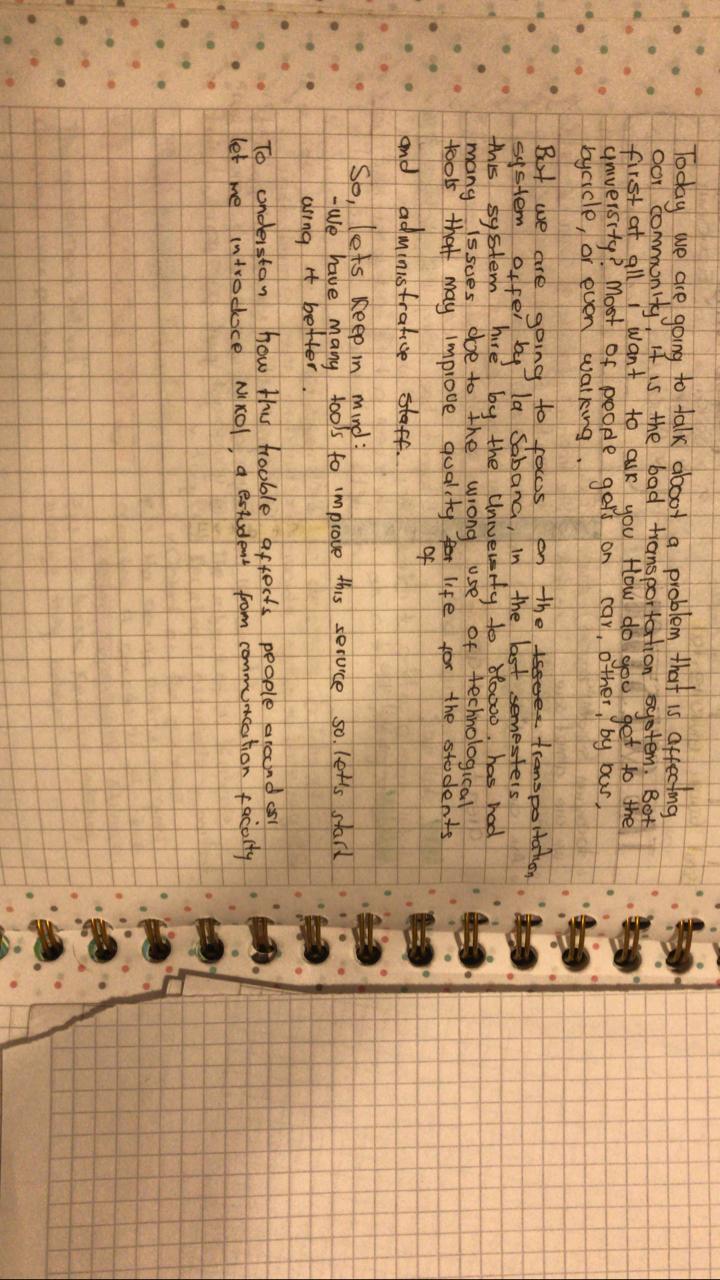 Today we are going to talk about a problem that is affecting
our community, it is the bad transportation system. But
first at all i want to ask you How do you get to the
university? Most of people gets on car, other, by bus,
bycicle, or even walking.
But we are going to focus on the issues transportation
system offer by la Sabana, in the last semesters
this system hire by the University to has had
many issues due to the wrong use of technological
tools that may improve quality for life for the students
of
and administrative staff.
So, lets keep in mind:
-We have many tools to improve this service so. let's start
using it better.
To understan how this trouble affects people around us
let me introduce Nikol, a estudent from communication faculty